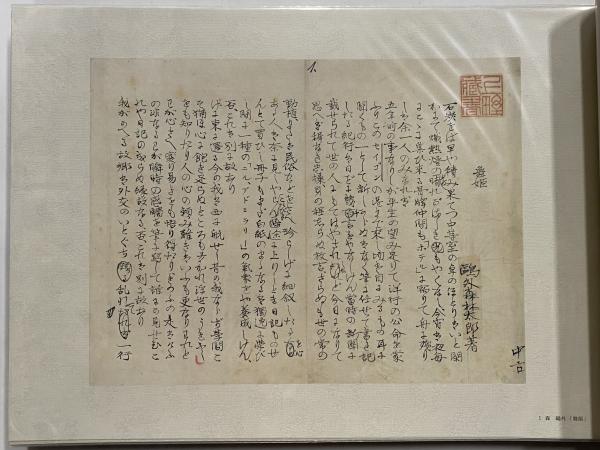 中古
鷗外森林太郎著
舞姫
石炭をば早や積み果てつ中等室の卓のほとりはいと閑
にて熾熱燈の晴れがましきもやくなし今宵は夜毎
にこゝに集ひ来る骨牌仲間も「ホテル」に宿りて舟に残り
しは余一人のみなれば
五年前の事なりしが平生の望み足りて洋行の公命を蒙
ふりこのセイゴンの港まで来し頃は目にみるもの耳に
聞くもの一として新しからぬはなく筆に任せて書き記
しつる紀行文日ごとに幾千言をかなしけん当時の新聞に
載せられて世の人にもてはやされしかど今日になりて
思へば穉なき思想身の程知らぬ放言さらぬも世の常の
動植金石民俗などをさへ珍らしげに記したるを心
ある人は奈何に見しやらんこ度は途に上りしとき日記ものせ
んとて買ひし冊子もまだ白紙のまゝなるは独逸に学び
し間に一種の「ニル、アドミラリ」の気象をや養成しけん
否これには別に故あり
げに東に還る今の我は西に航せし昔の我ならず学問こ
そ猶ほ心に飽き足らぬところも多かれ浮世のうきふし
をも知りたり人の心の頼み難きはいふも更なりわれと
わが心さへ変り易きをも悟り得たりきのふの是はけふ
の非なるわが瞬時の感触を筆に写して誰にか見せむこ
れや日記の成らぬ縁故なる否これには別に故あり
我がかへる故郷は外交のいとぐち乱れて一行
1 森 鷗外「舞姫」